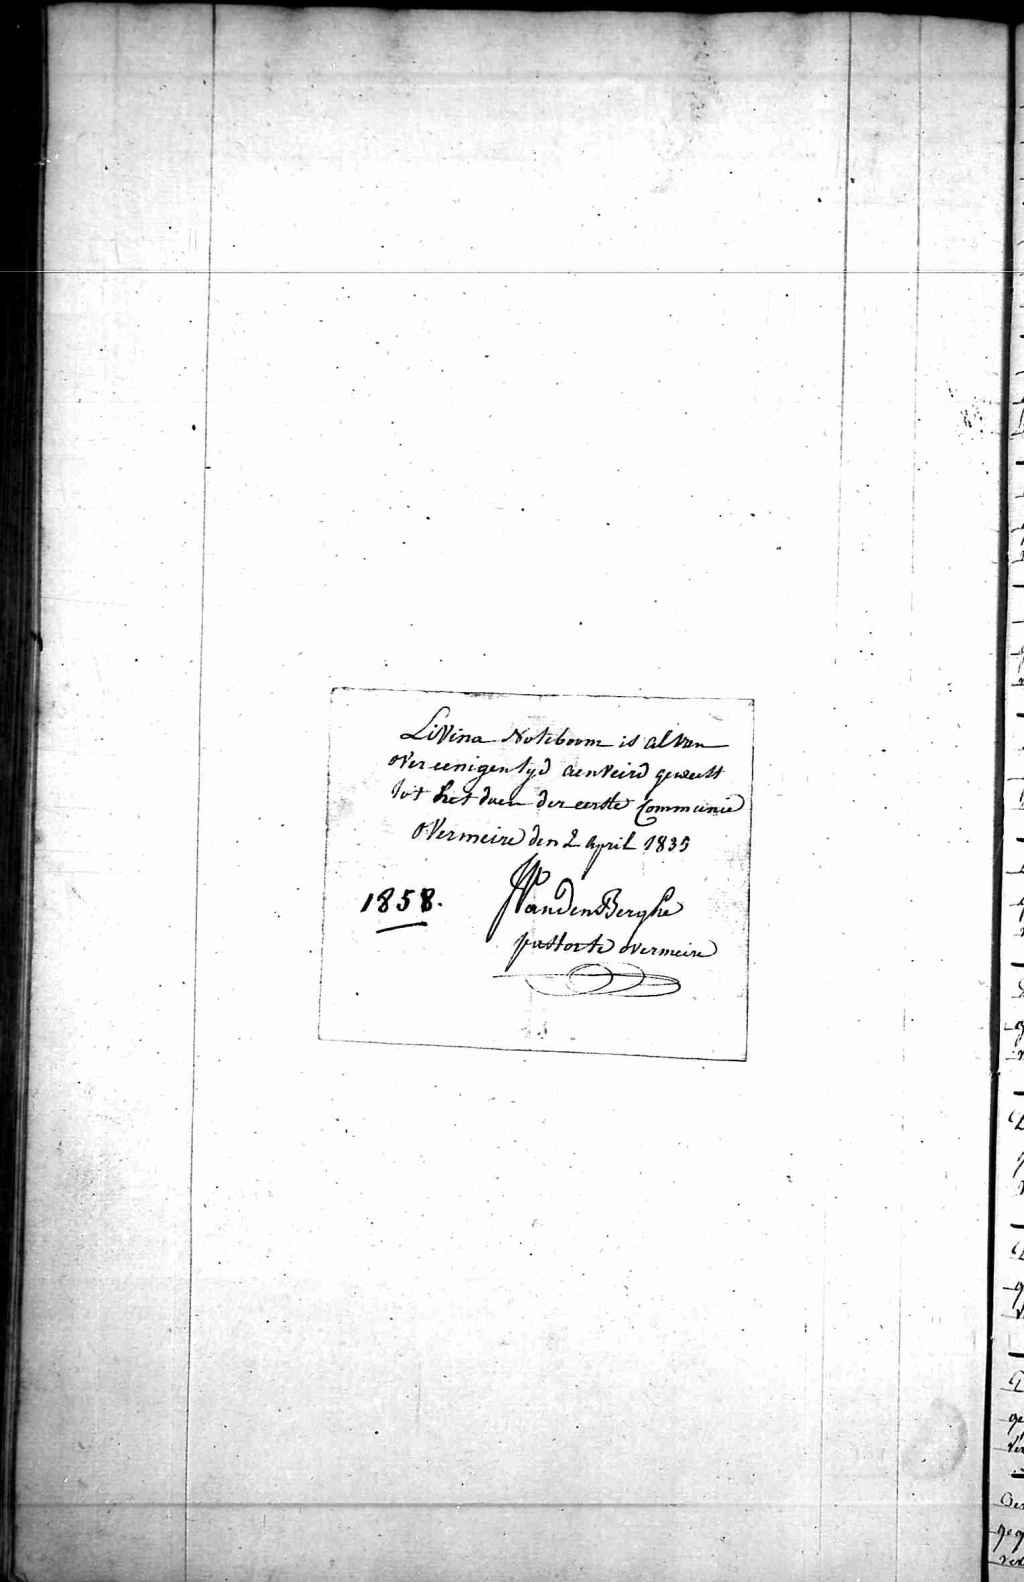 Livina Noteboom is al van
over eenigen tyd aenveird geweest
tot het doen der eerste Communie
overmeire den 2 april 1835
1858.
VandenBerghe
pastor te overmeire